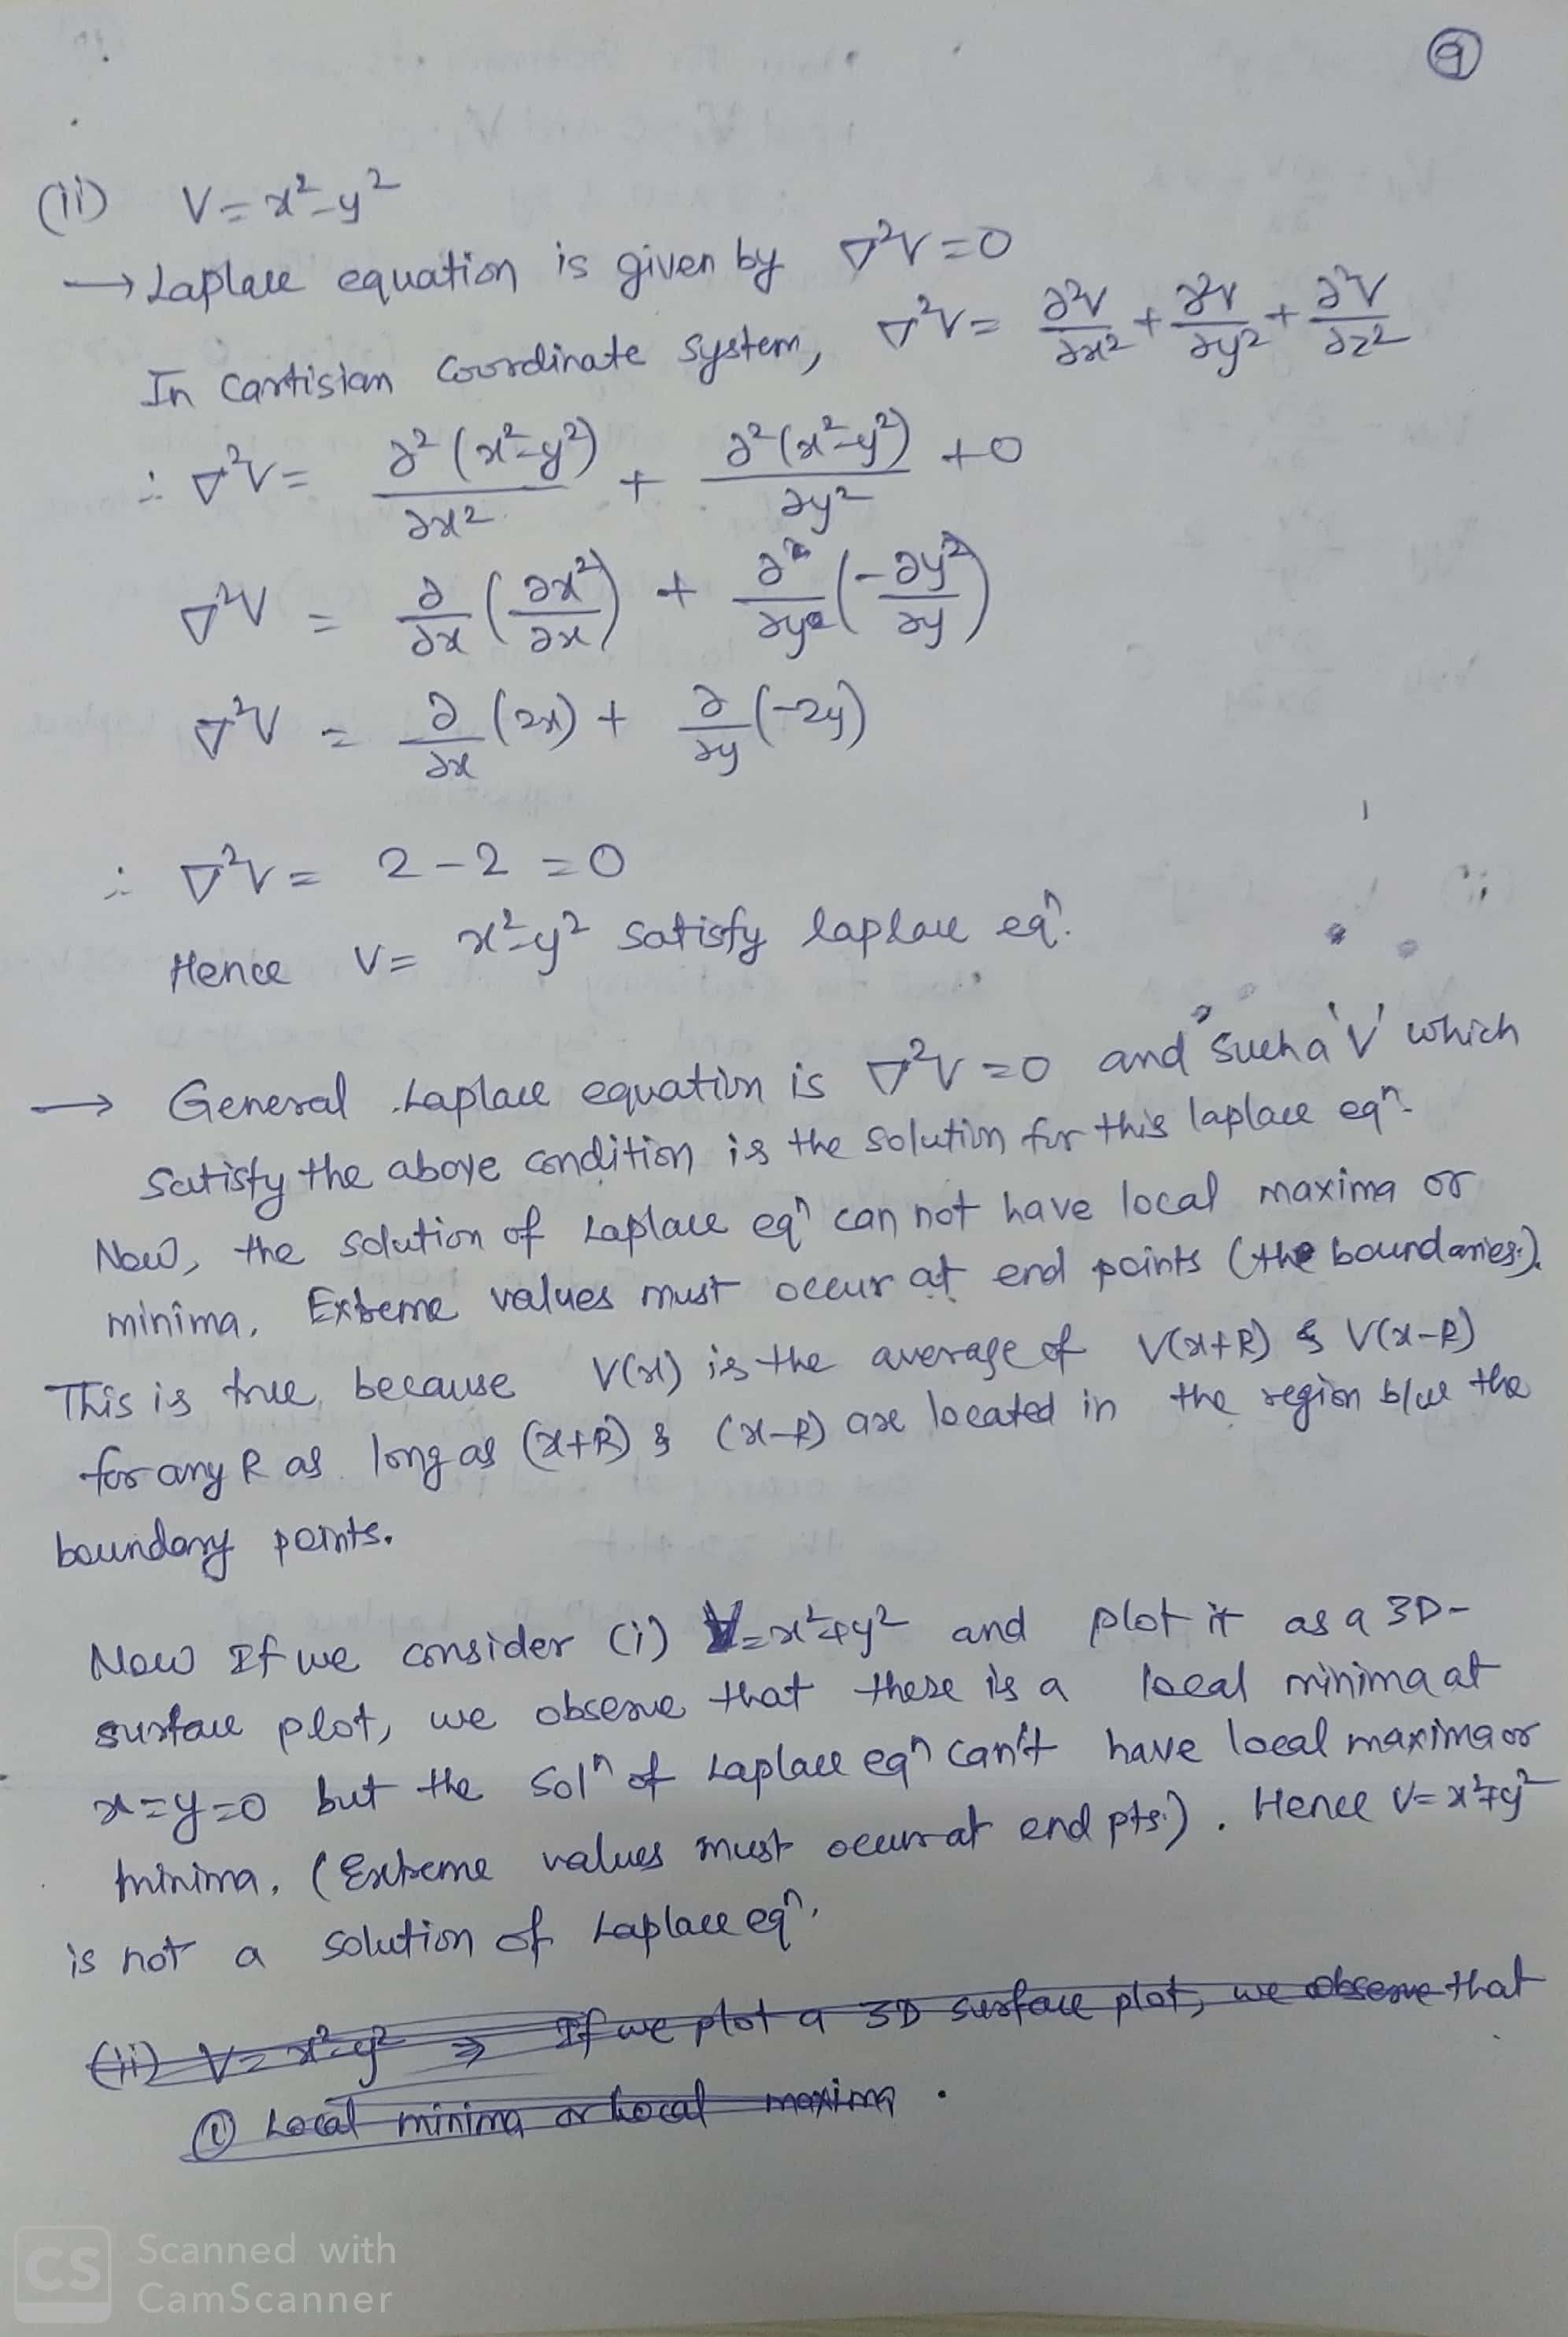 9
(ii) V = x²-y²
→ Laplace equation is given by ∇²V=0
In Cartisian Coordinate system, ∇²V = ∂²V/∂x² + ∂²V/∂y² + ∂²V/∂z²
∴ ∇²V = ∂²(x²-y²)/∂x² + ∂²(x²-y²)/∂y² + 0
∇²V = ∂/∂x (∂x²/∂x) + ∂/∂y (-∂y²/∂y)
∇²V = ∂/∂x (2x) + ∂/∂y (-2y)
∴ ∇²V = 2-2 =0
Hence V= x²-y² satisfy laplace eqⁿ.
→ General Laplace equation is ∇²V=0 and such a 'V' which
satisfy the above condition is the solution for this laplace eqⁿ.
Now, the solution of Laplace eqⁿ can not have local maxima or
minima. Exteme values must occur at end points (the boundaries).
This is true, because V(x) is the average of V(x+R) & V(x-R)
for any R as long as (x+R) & (x-R) are located in the region b/w the
boundary points.
Now If we consider (i) V=x²+y² and plot it as a 3D-
surface plot, we observe that there is a local minima at
x=y=0 but the solⁿ of Laplace eqⁿ can't have local maxima or
minima. (Exteme values must occur at end pts.). Hence V=x²+y²
is not a solution of Laplace eqⁿ.
(ii) V= x²-y² ⇒ If we plot a 3D surface plot, we observe that
① Local minima or Local maxima.
CS Scanned with
CamScanner